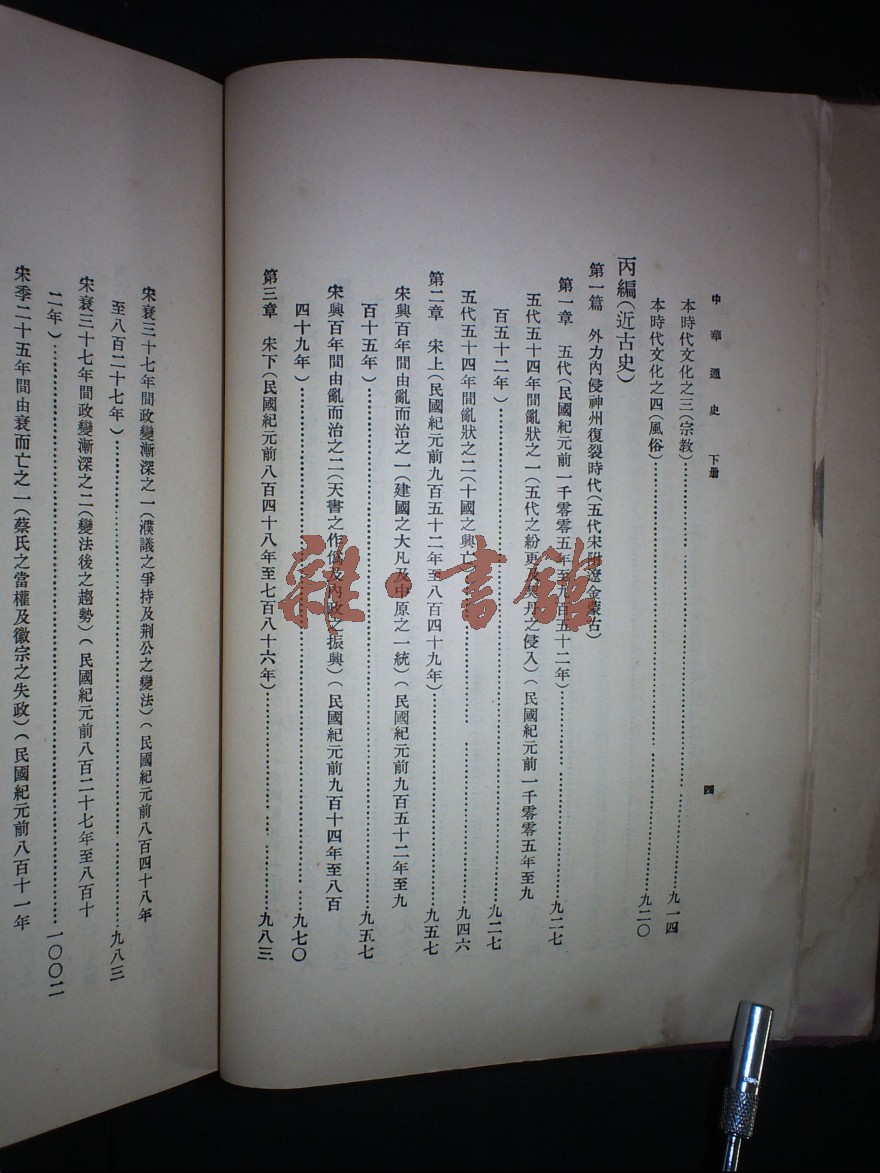 中華通史　下冊
四
本時代文化之三(宗教)……九一四
本時代文化之四(風俗)……九二〇
丙編(近古史)
第一篇　外力內侵神州復裂時代(五代宋附遼金蒙古)
第一章　五代(民國紀元前一千零零五年至九百五十二年)……九二七
五代五十四年間亂狀之一(五代之紛更及契丹之侵入)(民國紀元前一千零零五年至九
百五十二年)……九二七
五代五十四年間亂狀之二(十國之興亡……九四六
第二章　宋上(民國紀元前九百五十二年至八百四十九年)……九五七
宋興百年間由亂而治之一(建國之大凡及中原之一統)(民國紀元前九百五十二年至九
百十五年)……九五七
宋興百年間由亂而治之二(天書之作僞及內政之振興)(民國紀元前九百十四年至八百
四十九年)……九七〇
第三章　宋下(民國紀元前八百四十八年至七百八十六年)……九八三
宋衰三十七年間政變漸深之一(濮議之爭持及荆公之變法)(民國紀元前八百四十八年
至八百二十七年)……九八三
宋衰三十七年間政變漸深之二(變法後之趨勢)(民國紀元前八百二十七年至八百十
二年)……一〇〇二
宋季二十五年間由衰而亡之一(蔡氏之當權及徽宗之失政)(民國紀元前八百十一年
雜·書館